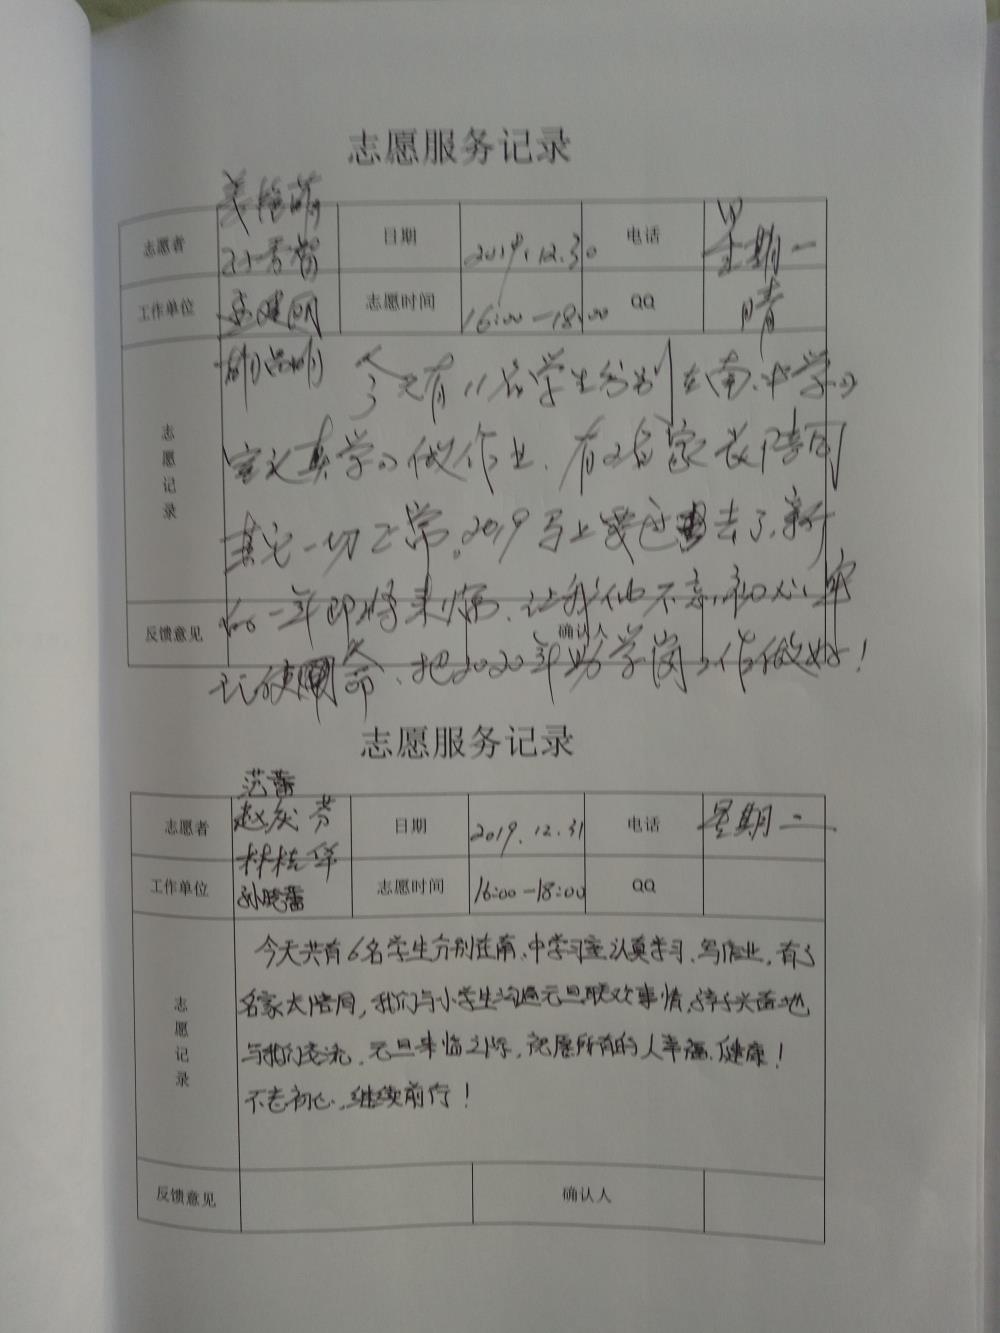 志愿服务记录
志愿者 姜艳萌 日期 2019.12.30 电话 星期一
工作单位 孟建刚 志愿时间 16:00-18:00 QQ 晴
胡品刚
志愿记录
今天有11名学生分别在南、中学习
室认真学习做作业、有2名家长陪同
其它一切正常。2019马上要过去了,新
的一年即将来临、让我们不忘初心,牢
记使命、把2020年助学岗工作做好!
反馈意见 确认人
志愿服务记录
范蕾
志愿者 赵庆芳 日期 2019.12.31 电话 星期二
林桂华
工作单位 孙晓蕾 志愿时间 16:00-18:00 QQ
志愿记录
今天共有6名学生分别在南、中学习室认真学习、写作业,有3
名家大陪同,我们与小学生沟通元旦联欢事情,孩子兴奋地
与我们交流,元旦来临之际,祝愿所有的人幸福、健康!
不忘初心,继续前行!
反馈意见 确认人